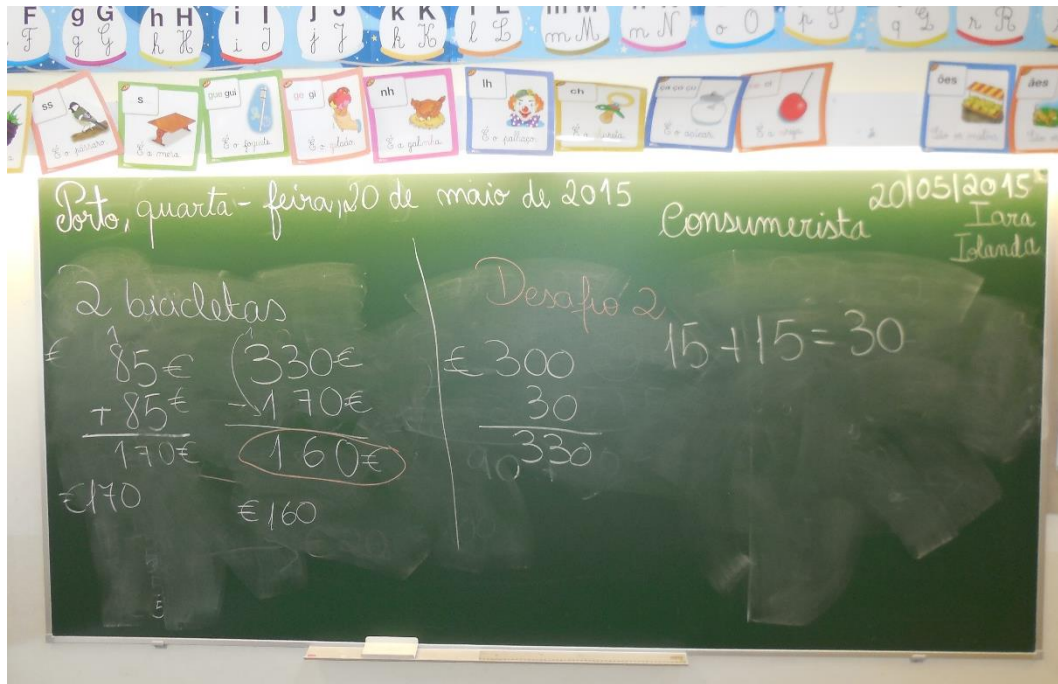 F g G h H i I j J k K l L m M
F g G h H i I j J k K l L m M n N o O p P q Q r R
ss
É o pássaro
s
É a mesa
gue gui
É o foguete
ge gi
É o gelado
nh
É a galinha
lh
É o palhaço
ch
É a chupeta
É o açúcar
É a cereja
ões
ães
Porto, quarta-feira, 20 de maio de 2015
Consumerista
20/05/2015
Iara
Iolanda
2 bicicletas
€ 85€
+ 85€
170€
€170
330€
- 170€
160€
€160
Desafio 2
€ 300
30
330
15+15=30
5